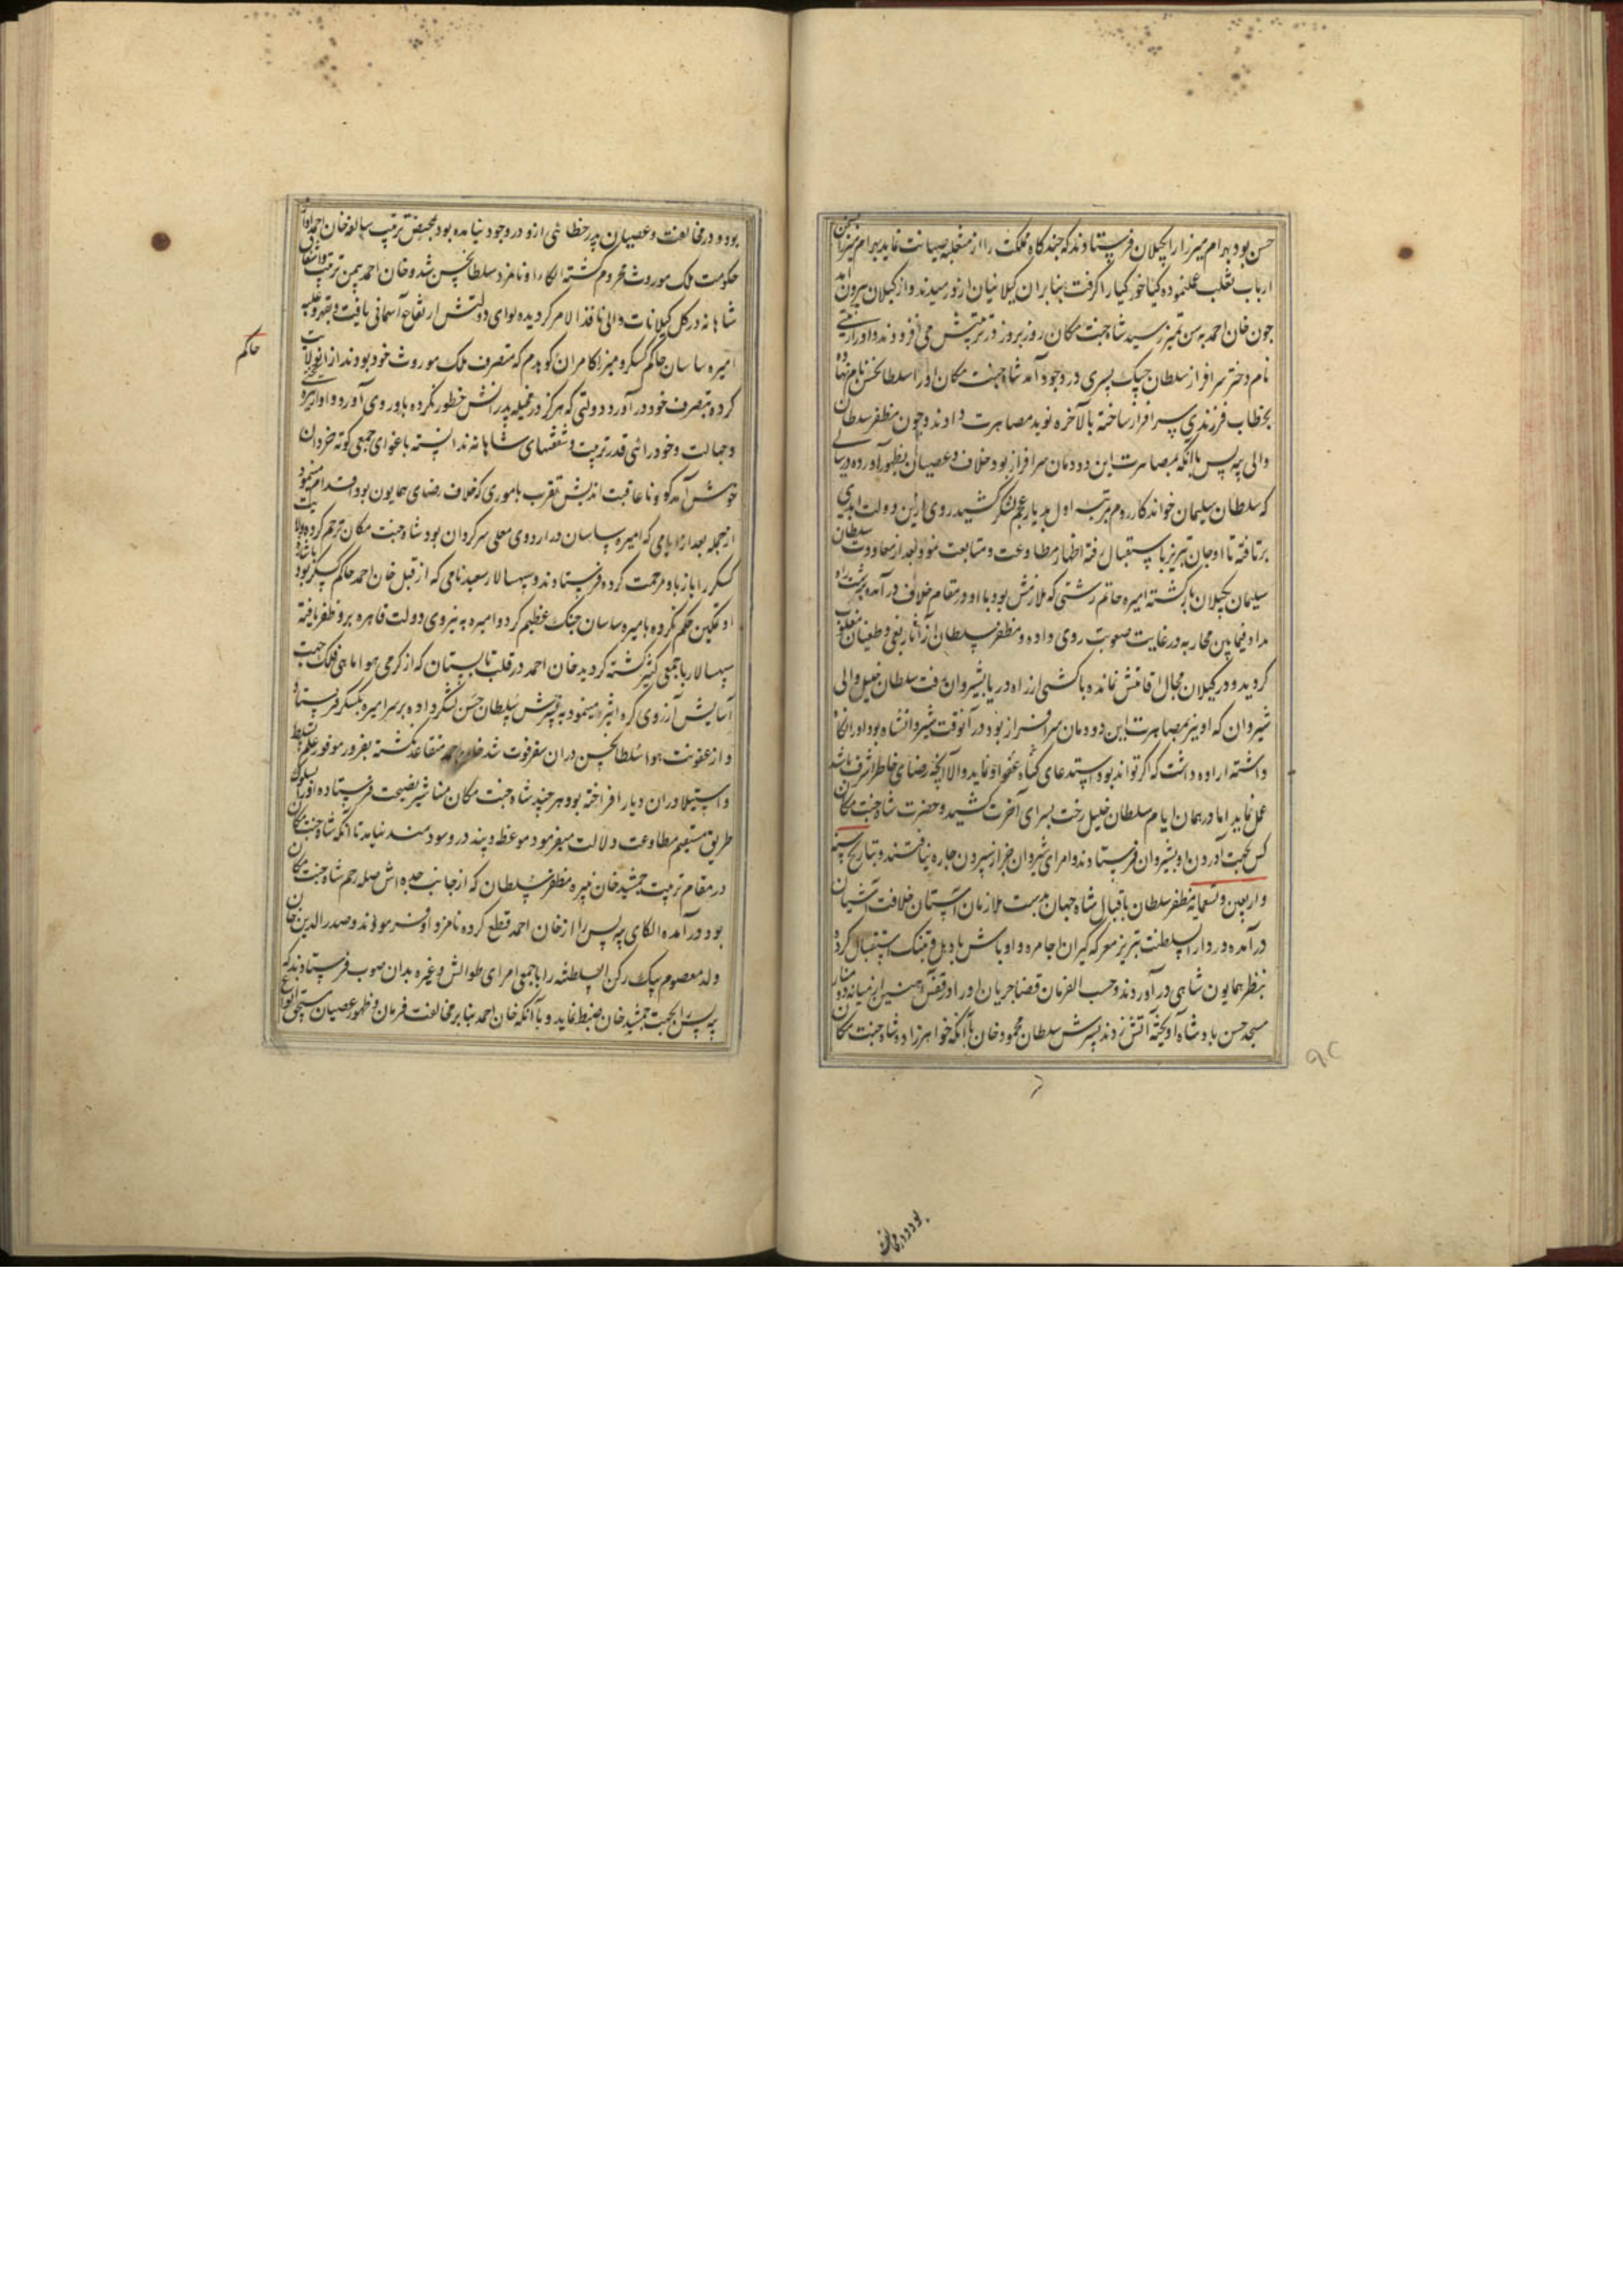 حسن بود بهرام میرزا را بکیلان فرستادند که چند کاه مملکت را از متغلبه صیانت نماید بهرام میرزا
ارباب تغلب عمل نموده کیا خور کیا را کرفت بنابران کیلانیان ازو رمیدند و از کیلان بیرون آمد
چون خان احمد بسن تمیز رسید شاه جنت مکان روز بروز در تربیتش می افزودند و او را
نام دختر سرافراز سلطان چپک پسری در وجود آمد شاه جنت مکان او را سلطان حسن نام نهاده
بخطاب فرزندی سرافراز ساخته بالاخره نوید مصاهرت دادند و چون مظفر سلطان
والی بیه پس باآنکه بمصاهرت این دودمان سرافراز بود خلاف و عصیان بظهور آورده در سالی
که سلطان سلیمان خواندکار روم مرتبه اول بدیار عجم لشکر کشید روی ازین دولت ابدی
برتافته تا اوجان تبریز باستقبال رفته اظهار مطاوعت و متابعت نمود و بعد از معاودت سلطان
سلیمان بکیلان بازکشته امیره حاتم رشتی که ملازمش بود با او در مقام خلاف در آمده برشت راه
نداد فیمابین محاربه در غایت صعوبت روی داده و مظفر سلطان از آثار بغی و طغیان مغلوب
کردید و در کیلان مجال اقامتش نمانده با کشتی از راه دریا بشیروان رفت سلطان خلیل والی
شیروان که او نیز بمصاهرت این دودمان سرافراز بود در آنوقت شیروانشاه بود او را نکاه
داشته اراده داشت که اکر تواند بود استدعای کناه عفو او نماید والا آنچه رضای خاطر اشرف باشد
عمل نماید اما در همان ایام سلطان خلیل رخت بسرای آخرت کشید و حضرت شاه جنت مکان
کس بجهت آوردن او بشیروان فرستادند و امرای شیروان جز از سپردن چاره نیافتند و بتاریخ سنه
و اربعین و تسعمایه مظفر سلطان باقبال شاه جهان بدست ملازمان آستان خلافت آشیان
در آمده در دار السلطنت تبریز معرکه کیران اجامره و اوباش با دهل و تنبک استقبال کرده
بنظر همایون شاهی در آوردند و حسب الفرمان قضا جریان او را در قفس آهنین از میانه دو منار
مسجد حسن پادشاه آویخته آتش زدند پسرش سلطان محمود خان باآنکه خواهرزاده شاه جنت مکان
بود و در مخالفت
۹۲
بود و در مخالفت و عصیان پدر خطائی ازو در وجود نیامده بود بمحض ترتیب سالفه خان احمد از
حکومت ملک موروث محروم کشته الکا را و نامزد سلطان حسن شد و خان احمد بیمن تربیت و اشفاق
شاهانه در کل کیلانات والی نافذ الامر کردیده لوای دولتش ارتفاع آسمانی یافت و بقهر و غلبه
امیره ساسان حاکم کسکر و میرزا کامران کوهدم که متصرف ملک موروث خود بودند از آنولایت
کرده بتصرف خود در آورد دولتی که هرکز در مخیله پدرانش خطور نکرده باو روی آورد و او از
و جهالت و خودرائی قدر تربیت و شفقتهای شاهانه ندانسته باغوای جمعی کوته خردان
خوش آمدکو و ناعاقبت اندیش مقرب بأموری که خلاف رضای همایون بود اقدام مینمود
از جمله بعد از ایامی که امیره ساسان در اردوی معلی سرکردان بود شاه جنت مکان ترحم کرده ولایت
کسکر را باز باو مرحمت کرده فرستادند و سپهسالار سعید نامی که از قبل خان احمد حاکم کسکر بود
او تمکین حکم نکرده با امیره ساسان جنک عظیم کرد و امیره به نیروی دولت قاهره برو ظفر یافته
سپهسالار با جمعی کثیر کشته کردید خان احمد در قلب تابستان که از کرمی هوا ماهی فلک جهت
آسایش آرزوی کره اثیر مینمود پسرش سلطان حسن لشکر داده بر سر امیره بکسکر فرستاد
و از عفونت هوا سلطان حسن دران سفر فوت شد خان احمد متقاعد نکشته بغرور موفور علم تسلط
و استیلا دران دیار افراخته بود و هر چند شاه جنت مکان مناشیر نصیحت فرستاده او را بسلوک
طریق مستقیم مطاوعت دلالت میفرمود موعظه و پند درو سودمند نیامد تا آنکه شاه جنت مکان
در مقام تربیت جمشید خان نبیره مظفر سلطان که از جانب جده اش صله رحم شاه جنت مکان
بود در آمده الکای بیه پس را از خان احمد قطع کرده نامزد او فرمودند و صدر الدین خان
ولد معصوم بیک رکن السلطنه را با جمعی امرای طوالش و غیره بدان صوب فرستادند که
بیه پس را بجهت جمشید خان ضبط نماید و باآنکه خان احمد بنابر مخالفت فرمان و ظهور عصیان مستحق انواع
حاکم